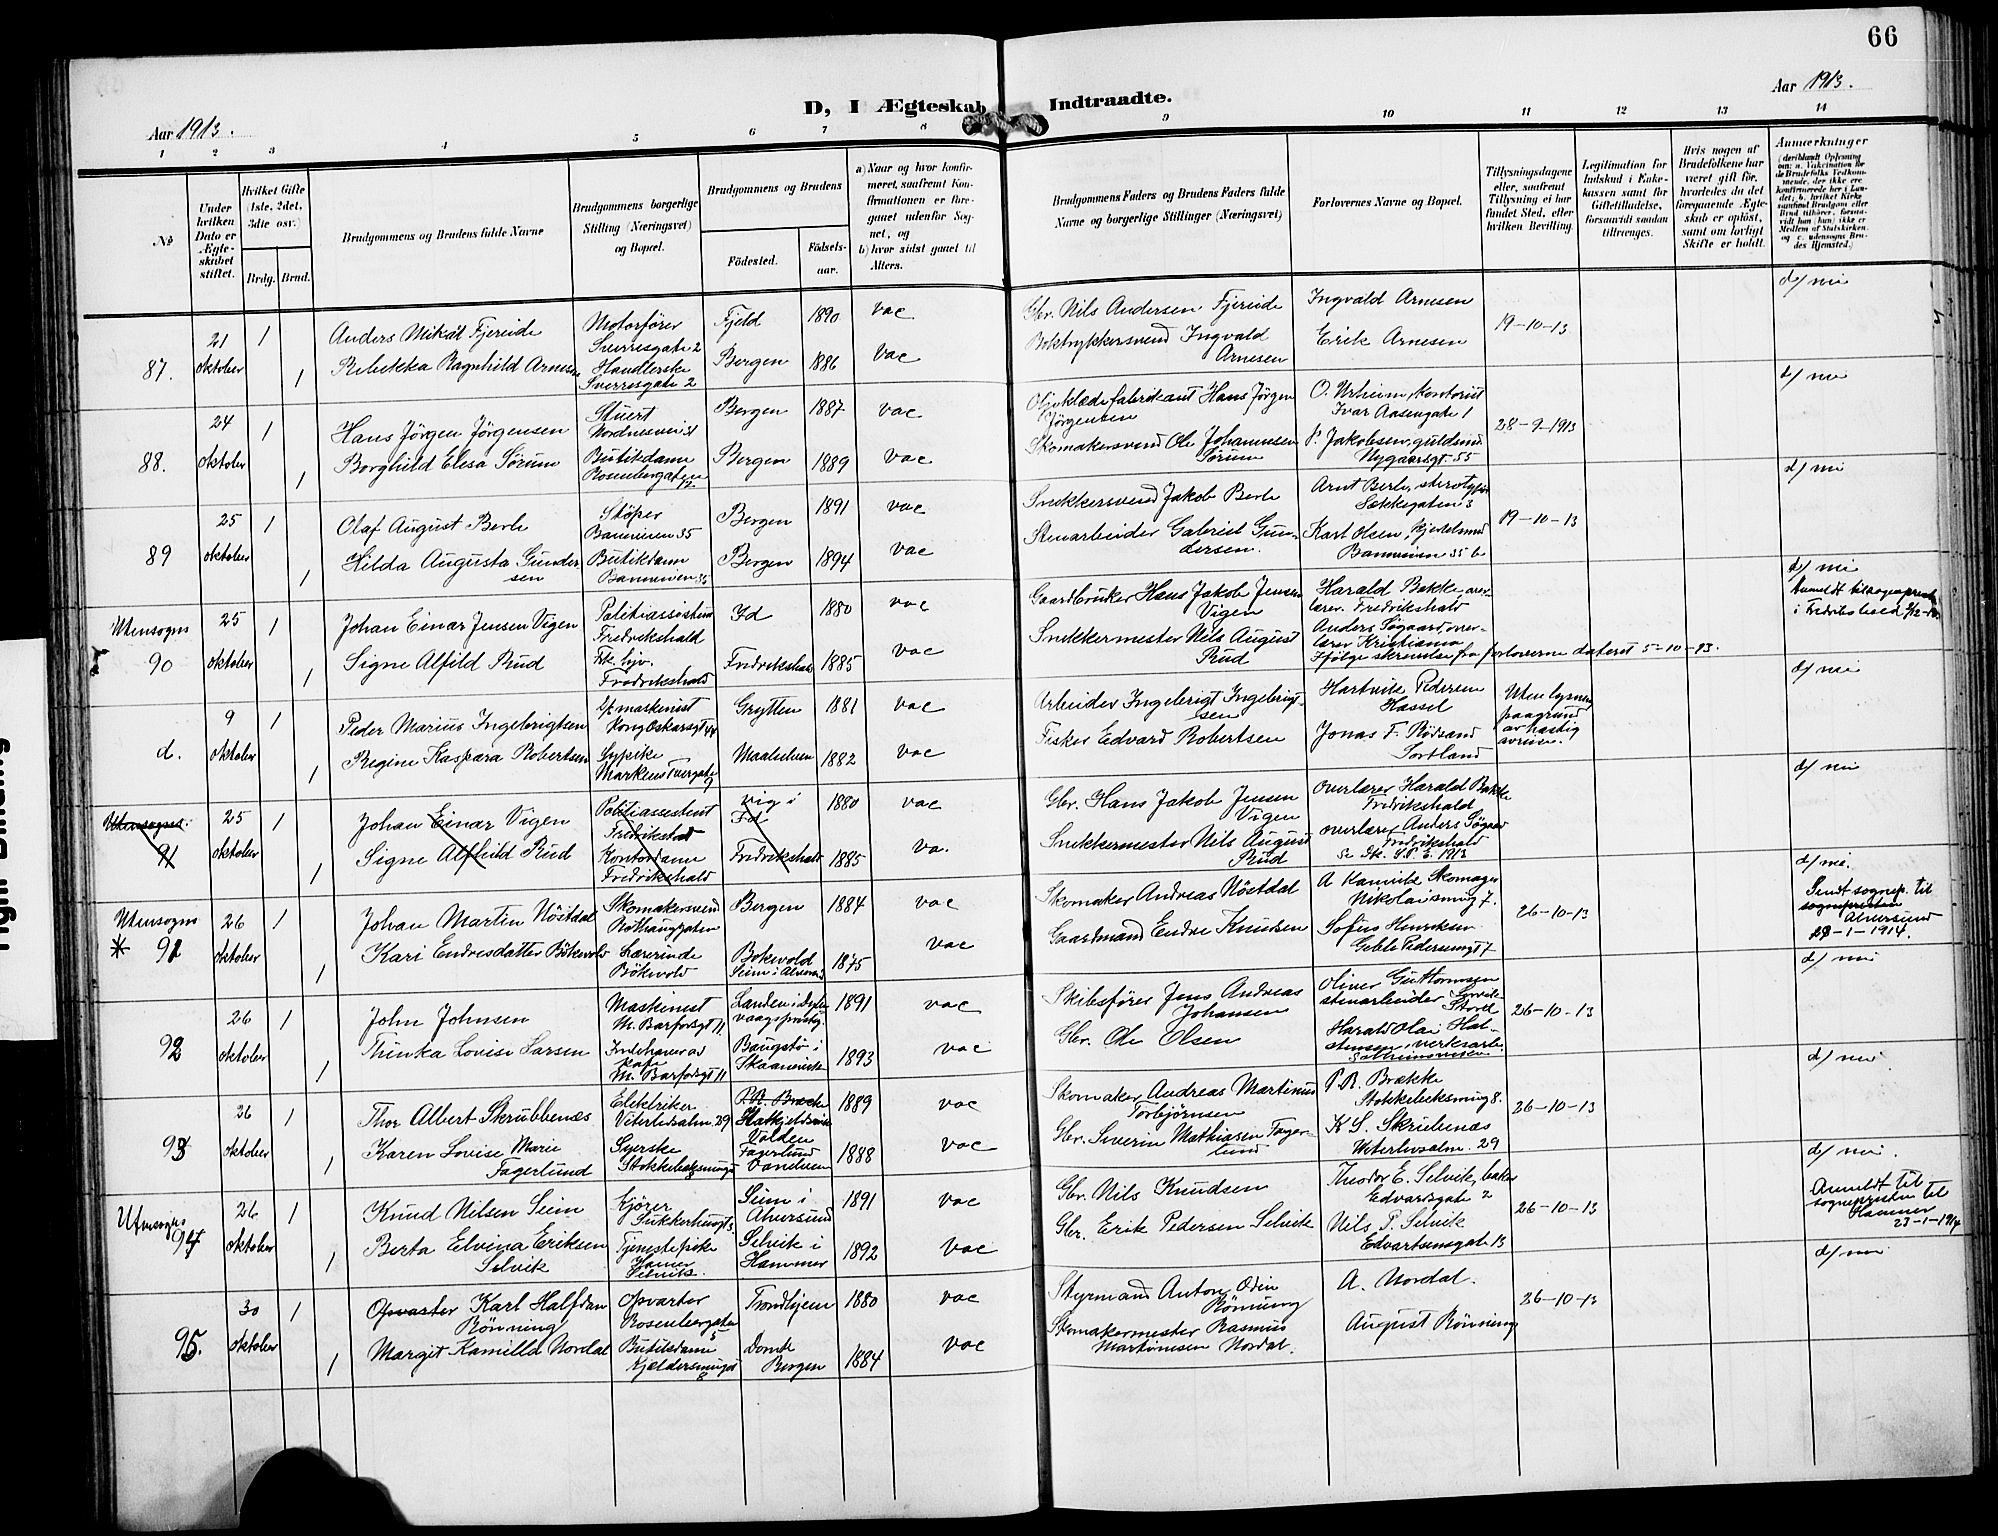 66
Aar 1913.
D, I Ægteskab Indtraadte.
Aar 1913.
1 2 3 4 5 6 7 8 9 10 11 12 13 14
No
Under hvilken Dato er Ægteskabet stiftet.
Hvilket Gifte (1ste, 2det, 3die osv.)
Brdg. Brud.
Brudgommens og Brudens fulde Navne
Brudgommens borgerlige Stilling (Næringsvei) og Bopæl.
Brudgommens og Brudens
Födested.
Födselsaar.
a) Naar og hvor konfirmeret, saafremt Konfirmationen er foregaaet udenfor Sognet, og
b) hvor sidst gaaet til Alters.
Brudgommens Faders og Brudens Faders fulde Navne og borgerlige Stillinger (Næringsvei)
Forlovernes Navne og Bopæl.
Tillysningsdagene eller, saafremt Tillysning ei har fundet Sted, efter hvilken Bevilling.
Legitimation for Indskud i Enkekassen samt for Giftetilladelse, forsaavidt saadan tiltrænges.
Hvis nogen af Brudefolkene har været gift för, hvorledes da det foregaaende Ægteskab er oplöst, samt om lovligt Skifte er holdt.
Anmerkninger
87.
21 oktober
1
Anders Mikal Fjereide
Motorfører
Sverresgate 2
Fjeld
1890
vac
Gbr. Nils Andersen Fjereide
Ingvald Arnesen
19-10-13
d/ nei
1
Rebekka Ragnhild Arnesen
Handlerske
Sverresgate 2
Bergen
1886
vac
Boktrykkersvend Ingvald
Arnesen
Erik Arnesen
88.
24 oktober
1
Hans Jörgen Jörgensen
Stuert
Nordnesvei 31
Bergen
1887
vac
Oljeklædefabrikant Hans Jörgen
Jörgensen
O. Urheim, kontorist
Ivar Aasengate 1
28-9-1913
d/ nei
1
Borghild Elisa Sørum
Butikdame
Rosenbergaten
Bergen
1889
vac
Skomakersvend Ole Johannesen
Sørum
P. Jakobsen, guldsmed
Nygaardsgt. 55
89
25 oktober
1
Olaf August Berle
Støper
Banneveien 35
Bergen
1891
vac
Snekkersvend Jakob Berle
Arnt Berle, sterotypør
Sækkegaten 3
19-10-13
d/ nei
1
Hilda Augusta Gundersen
Butikdame
Bergen
1894
vac
Stenarbeider Gabriel Gundersen.
Karl Olsen
35 b
Utensogns
90
25 oktober
1
Johan Einar Jensen Vigen
Politiassistent
Fredrikshald
Id
1880
vac
Gaardbruker Hans Jakob Jensen
Vigen
Harald Bakke, overlærer. Fredrikshald
d/ nei
Anmeldt til sogneprest
i Fredrikshald
1
Signe Alfild Rud
Frk.
Fredrikshald
Fredrikshald
1885
vac
Snekkermester Nils August
Rud
Anders Søgaard, overlærer Kristiania
Ifølge skrivelse fra forloverne dateret 5-10-13.
d.
9 oktober
1
Peder Marius Ingebrigtsen
maskinist
Kong Oskarsgt 44
Grytten
1881
vac
Arbeider Ingebrigt Ingebrigtsen
Hartvik Pedersen
Hassel
Uten lysning
paagrund
av hastig
avreise.
d/ nei
1
Regine Kaspara Robertsen
Sypike
Markens Tvergate
Maalselven
1882
vac
Fisker Edvard Robertsen
Jonas F. Rödsand
Sortland
Utensogns.
91
25 oktober
1
Johan Einar Vigen
Politiassistent
Fredrikstad
Vig i
Id
1880
vac
Gbr. Hans Jakob Jensen
Vigen
overlærer Harald Bakke
Fredrikshald
d/ nei
1
Signe Alfhild Rud
Kontordame
Fredrikshald
Fredrikshald
1885
va.
Snekkermester Nils August
Rud
overlærer Anders Søgaard
Fredrikshald
Utensogns
* 91
26 oktober
1
Johan Martin Nöstdal
Skomakersvend
Bergen
1884
vac
Skomaker Andreas Nöstdal
A Kanvik Skomager
Nikolaismug 7.
26-10-13
d/ nei.
Sendt sognep. til
sognepresten
Alversund
28-1-1914.
1
Kari Endresdatter Bökevold
Lærerinde
Bökvold
Bokvold
Seim i Alversund
1875
vac
Gaardmand Endre Knudsen
Sofus Henriksen
Geble Pedersensgt 7
92
26 oktober
1
John Johnsen
Maskinist
M. Barfodsgt 11
1891
vac
Skibsfører Jens Andreas
Johansen
Oliver Guttormsen
stenarbeider
26-10-13
d/ nei
1
Thinka Lovise Larsen
Indehaver av
kafe
M. Barfodsgt 11
Baugstö i
Skaanevik
1893
vac
Gbr. Ole Olsen
Harald Olai
93
26 oktober
1
Thor Albert Skrubbenæs
Elektriker
Veterlidsalm. 29
1889
vac
Skomaker Andreas Martinus
Torbjørnsen
P.R. Brække
Stokkebeksmug 8.
26-10-13
d/ nei
1
Karen Lovise Marie
Fagerlund
Syerske
Stokkebæksmug
Fagerlund
1888
vac
Gbr. Severin Mathiasen Fagerlund
K S. Skriebenæs
Weterlivsalm. 29
Utensogns
94
26 oktober
1
Knud Nilsen Seim
Kjører
Sukkerhusgt 3
Seim i
Alversund
1891
vac
Gbr. Nils Knudsen
Theodor E. Selvik, baker
Edvardsgate 2
26-10-13
d/ nei.
Anmeldt til
sognepresten til
Hammer
23-1-1914
1
Berta Elvina Eriksen
Selvik
Tjenestepike
Hamer
Selvik.
Selvik i
Hammer
1892
vac
Gbr. Erik Pedersen Selvik
Nils P. Selvik
Edvartsensgate 13
95.
30 oktober
1
Opvarter Karl Halfdan
Rönning
Opvarter
Rosenbergaten
5
Trondhjem
1880
vac
Styrmand Anton Odin
Rönning
A. Nordal.
26-10-13
d/ nei
1
Margit Kamilla Nordal
Butikdame
Kjeldersmuget
8
Domk
Bergen
1884
vac
Skomakermester Rasmus
Martinesen Nordal.
August Rönning